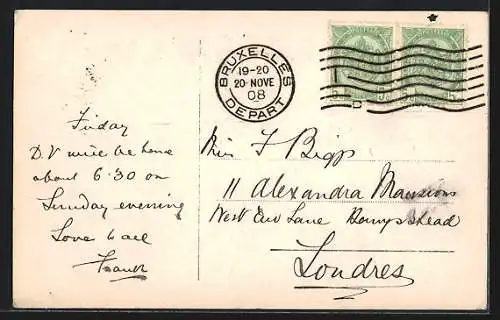 BRUXELLES
19-20
20 NOVE
08
DEPART
Friday
D.V. will be home
about 6.30 on
Sunday evening
Love to all
Frank
Miss F Biggs
11 Alexandra Mansions
West End Lane Hampstead
Londres